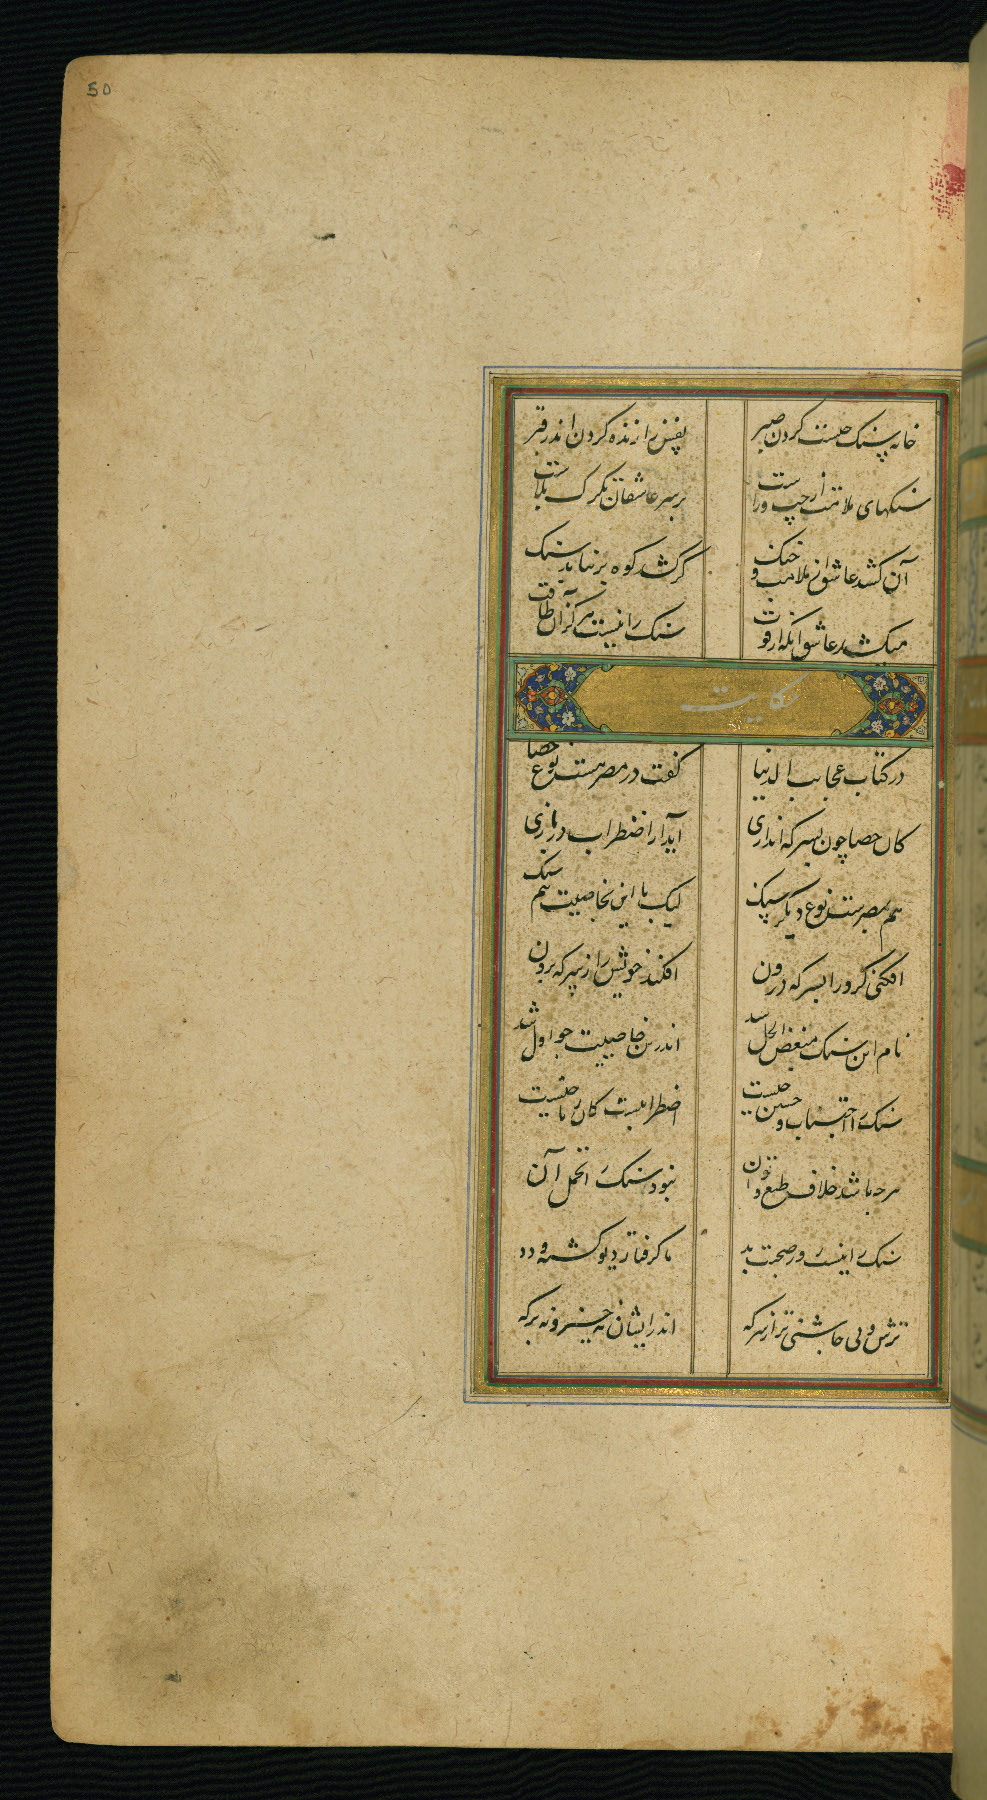 50
خانه پرسنک حلیست کردن صبر نفس را زنده کردن اندر قبر
سنکهای ملامت از چپ و راست بر سر عاشقان تکرک بلاست
آن کشد عاشق از ملامت و جنک کر کشد کوه برنیاید سنک
میکشد عاشق آنکه از قوت سنک را نیست هرکز آن طاقت
حکایت
در کتاب عجایب الدنیا کفت در مصر هست نوع حصا
کان حصا چون بسرکه اندازی آید از اضطراب در بازی
هم بمصرست نوع دیکر سنک لیک با این بخاصیت هم سنک
افکنی کر ورا بسرکه درون افکند خویش را ز سرکه برون
نام این سنک مبغض الخل شد اندرین خاصیت چو اول شد
سنک را اجتناب و حسن حلیست اضطرابیست کان ز ما خلیست
هرچه باشد خلاف طبع و توان نبود سنک را تحمل آن
سنک را نیست ور صحبت بد ما کرفتار دیو کشته و دد
ترش و بی چاشنی تر از سرکه اندر ایشان نه خیر و نه برکه